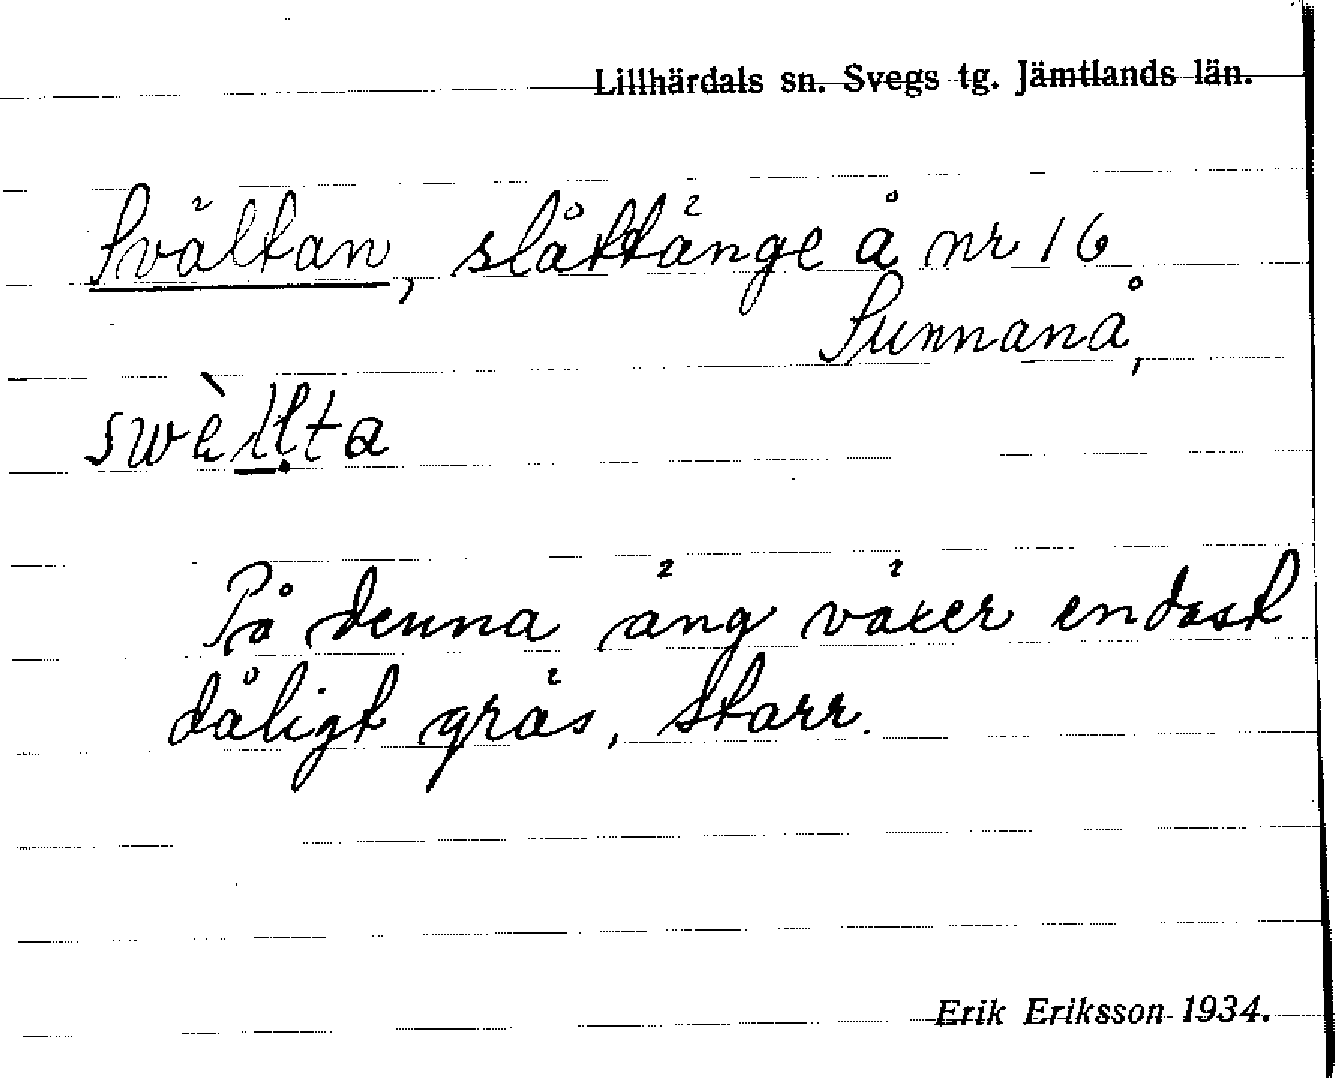 Lillhärdals sn. Svegs tg. Jämtlands län.
Svältan, slåttänge å nr 16
Sunnanå,
swèl̲ḷta
På denna äng växer endast
dåligt gräs, starr.
Erik Eriksson 1934.